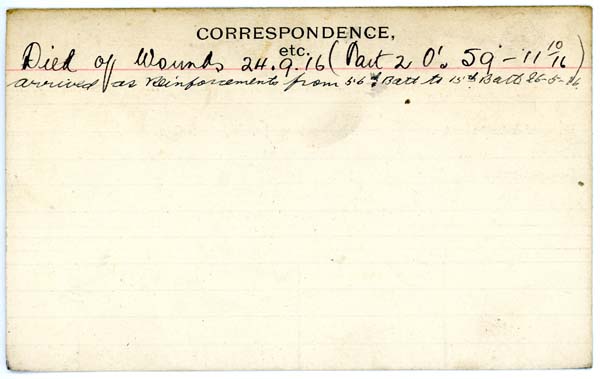 CORRESPONDENCE,
etc.
Died of Wounds 24.9.16 (Part 2 O's 59 - 11 10/16)
arrived as Reinforcements from 56th Batt to 15th Batt 26-5-16.